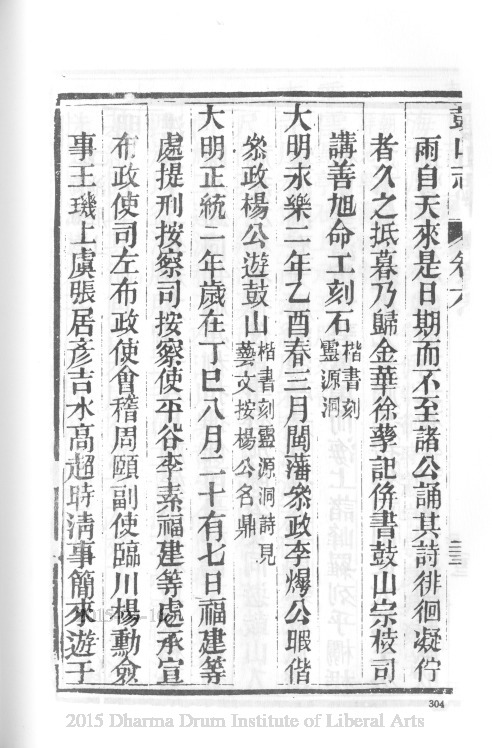 鼓山志 卷六
雨自天來是日期而不至諸公誦其詩徘徊凝佇
者久之抵暮乃歸金華徐孳記併書鼓山宗棱司
講善旭命工刻石楷書刻靈源洞
大明永樂二年乙酉春三月閩藩叅政李爆公暇偕
叅政楊公遊鼓山楷書刻靈源洞詩見藝文按楊公名鼎
大明正統二年歲在丁巳八月二十有七日福建等
處提刑按察司按察使平谷李素福建等處承宣
布政使司左布政使會稽周頤副使臨川楊勳僉
事王璣上虞張居彥吉水高超時淸事簡來遊于
304
2015 Dharma Drum Institute of Liberal Arts